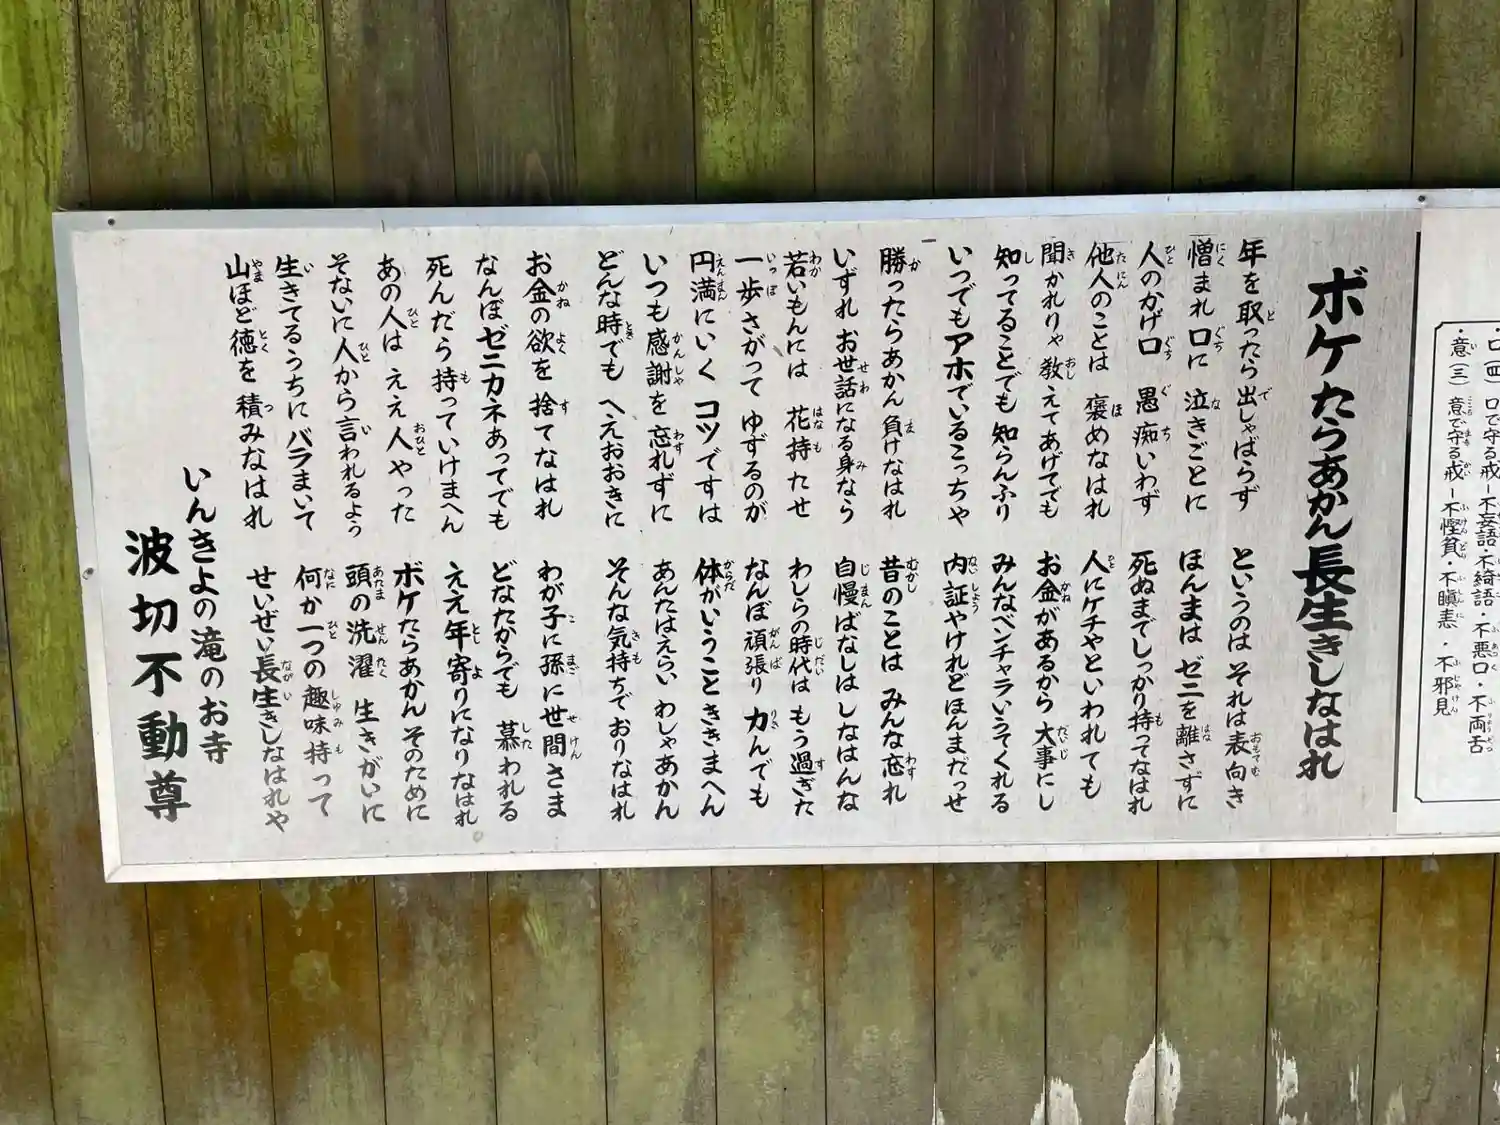 ・口（四）口で守る戒ー不妄語・不綺語・不悪口・不両舌
・意（三）意で守る戒ー不慳貪・不瞋恚・不邪見
ボケたらあかん長生きしなはれ
年を取ったら出しゃばらず
憎まれ口に 泣きごとに
人のかげ口 愚痴いわず
他人のことは 褒めなはれ
聞かれりゃ 教えてあげてでも
知ってることでも 知らんふり
いつでもアホでいるこっちや
勝ったらあかん 負けなはれ
いずれ お世話になる身なら
若いもんには 花持たせ
一歩さがって ゆずるのが
円満にいく コツですは
いつも感謝を 忘れずに
どんな時でも へえおおきに
お金の欲を 捨てなはれ
なんぼゼニカネあってでも
死んだら 持っていけまへん
あの人は ええ人やった
そないに人から 言われるよう
生きてるうちに バラまいて
山ほど徳を 積みなはれ
というのは それは表向き
ほんまは ゼニを離さずに
死ぬまでしっかり持ってなはれ
人にケチやといわれても
お金があるから 大事にし
みんなベンチャラいうてくれる
内証やけれどほんまだっせ
昔のことは みんな忘れ
自慢ばなしは しなはんな
わしらの時代は もう過ぎた
なんぼ頑張り 力んでも
体がいうこときまへん
あんたはえらい わしゃあかん
そんな気持ちで おりなはれ
わが子に孫に 世間さま
どなたからでも 慕われる
ええ年寄りになりなはれ
ボケたらあかん そのために
頭の洗濯 生きがいに
何か一つの 趣味持って
せいぜい長生きしなはれや
いんきよの滝のお寺
波切不動尊